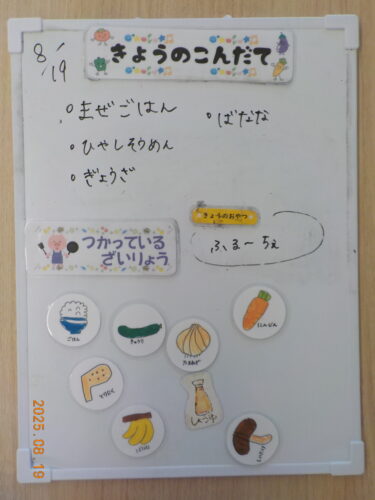 8/19
きょうのこんだて
°まぜごはん
°ばなな
°ひやしそうめん
°ぎょうざ
きょうのおやつ
ふるーちぇ
つかっている
ざいりょう
ごはん
きゅうり
たまねぎ
にんじん
とりにく
ばなな
しいたけ
2025.08.19